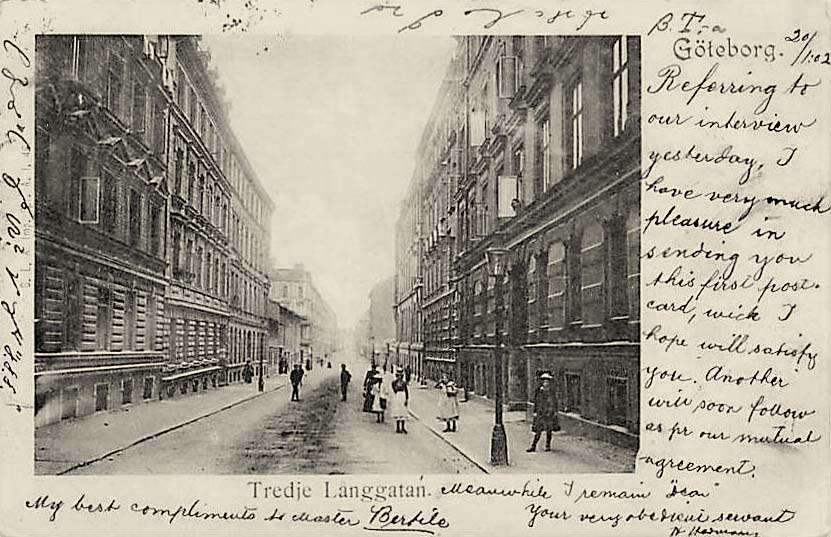 Göteborg. 20/1.02
Referring to
our interview
yesterday, I
have very much
pleasure in
sending you
this first post-
card, wick I
hope will satisfy
you. Another
will soon follow
as pr our mutual
agreement.
Tredje Långgatan. Meanwhile I remain "dear"
My best compliments to Master Bertile
Your very obedient servant